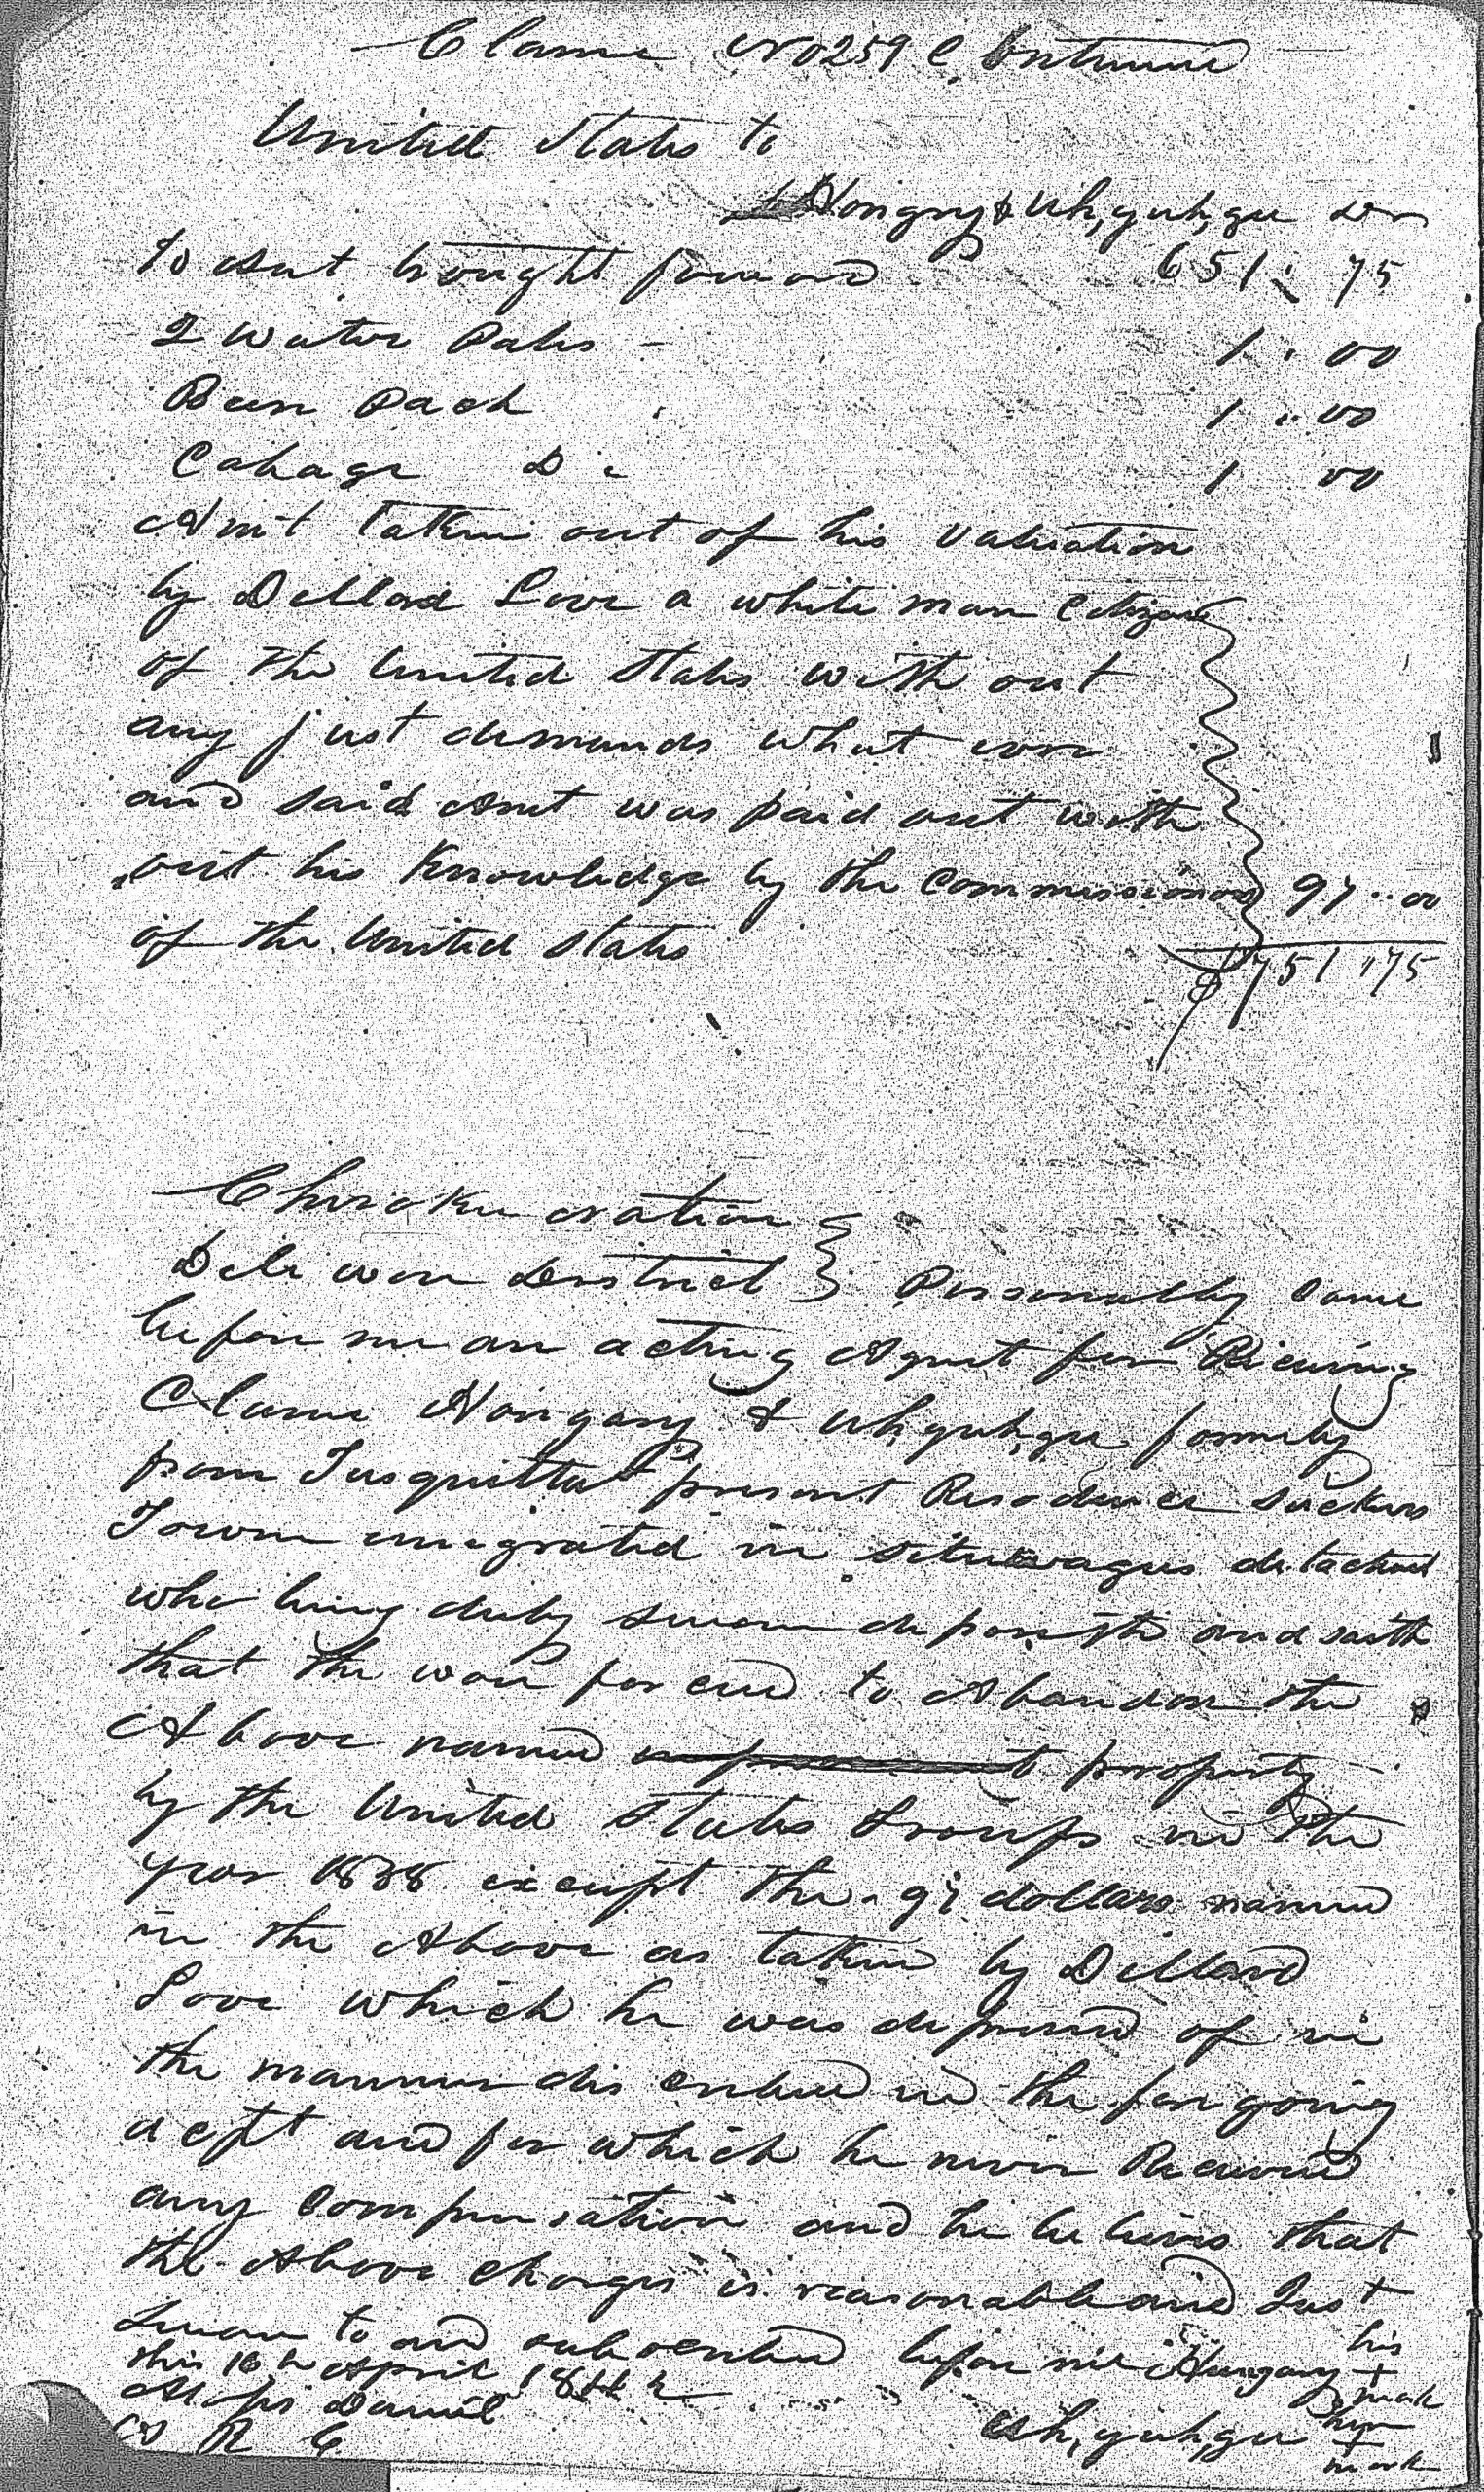 Clame No 259 Continued
United States to
Hongry & Uh,yuh,gu Dr
To Amt brought forward 651.. 75
2 Water Pales - 1.. 00
Been Pach 1.. 00
Cabage Do 1 00
Am't taken out of his valuation
by Dillard Love a white man Citizen
of the United States with out
any just demands what ever
and said Amt was paid out with
out his Knowledge by the Commissioners 97..00
of the United States
$751"75
Cherokee Nation
Dele ware District } Personally Came
before me an acting Agent for Receiving
Clame Hongary & Uh,yuh,gu formily
from Tusquittah present Residence Suckers
Town emigrated in Situwagus detachmt
who being duly sworn deposeth and saith
that the ware forced to Abandon the
Above named property
by the United States Troups in the
year 1838 except the 97 dollars named
in the Above as taken by Dillard
Love which he was deprived of in
the manner discribed in the for going
acpt and for which he never Received
any compensation and he belives that
the Above charges is reasonable and Just
Sworn to and subscribed before me Hungary his
this 16th April 1842 + mark
Moses Daniel Uh,yuh,gu her
A R C + mark